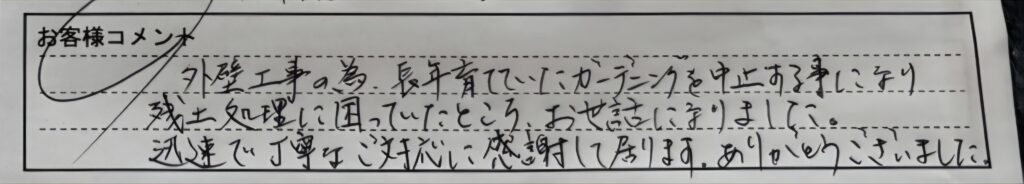 お客様コメント
外壁工事の為、長年育てていたガーデニングを中止する事になり
残土処理に困っていたところ、お世話になりました。
迅速で丁寧なご対応に感謝して居ります。ありがとうございました。